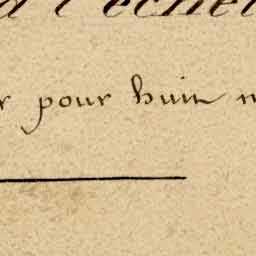 à l'échel
r pour huit m